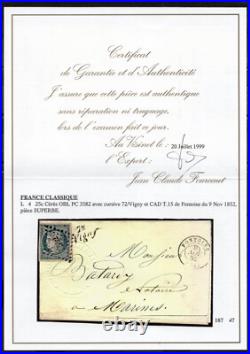 Certificat
de Garantie et d'Authenticité
J'assure que cette pièce est authentique
sans réparation ni truquage,
lors de l'examen fait ce jour.
Au Vésinet le
20 Juillet 1999
l'Expert:
Jean Claude Fourcaut
FRANCE CLASSIQUE
L 4 25c Cérès OBL PC 3582 avec cursive 72/Vigny et CAD T.15 de Pontoise du 9 Nov 1852,
pièce SUPERBE.
72
Vigny
PONTOISE
Monsieur
Batarcy
Notaire
a Marines
187 47